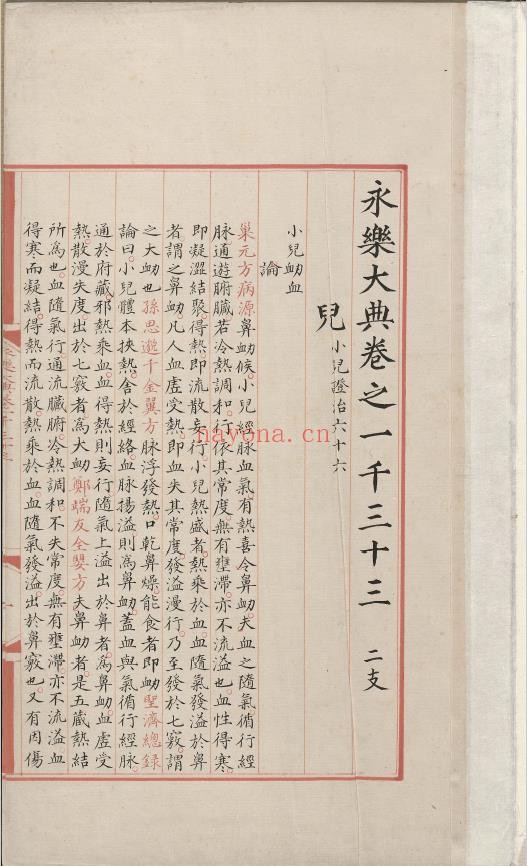 永樂大典卷之一千三十三 二支
兒 小兒證治六十六
小兒衂血
論
巢元方病源鼻衂候小兒經脉血氣有熱喜令鼻衂夫血之隨氣循行經
脉通遊腑臟若冷熱調和行依其常度無有壅滯亦不流溢也血性得寒
即凝澀結聚得熱即流散妄行小兒熱盛者熱乘於血血隨氣發溢於鼻
者謂之鼻衂凡人血虛受熱即血失其常度發溢漫行乃至發於七竅謂
之大衂也孫思邈千金翼方脉浮發熱口乾鼻燥能食者即衂聖濟總録
論曰小兒體本挾熱舍於經絡血脉揚溢則為鼻衂蓋血與氣循行經脉
通於府藏邪熱乘血血得熱則妄行隨氣上溢出於鼻者為鼻衂血虛受
熱散漫失度出於七竅者為大衂鄭端友全嬰方夫鼻衂者是五藏熱結
所為也血隨氣行通流臟腑冷熱調和不失常度無有壅滯亦不流溢血
得寒而凝結得熱而流散熱乘於血血隨氣發溢出於鼻竅也又有因傷
nayona.cn